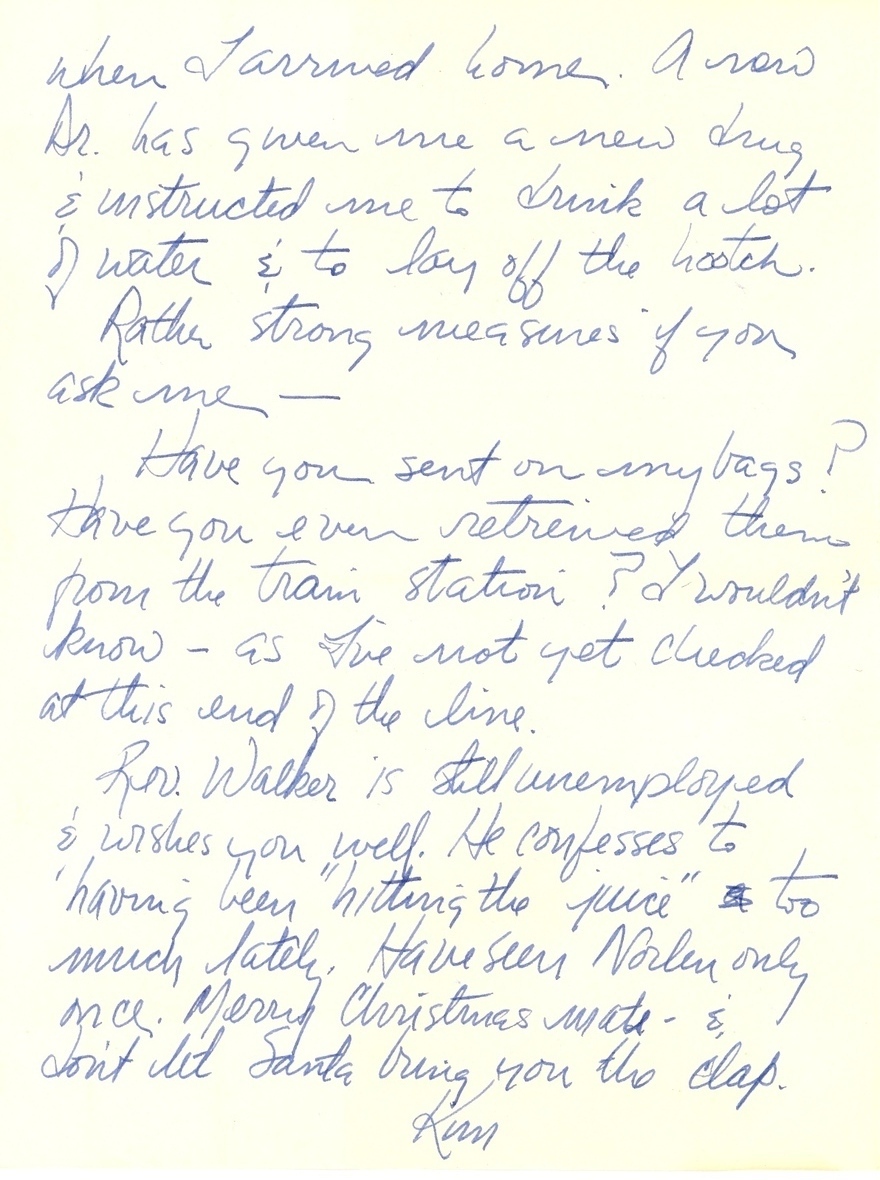 when I arrived home. A new
Dr. has given me a new drug
& instructed me to drink a lot
of water & to lay off the hootch.
Rather strong measures if you
ask me —
Have you sent on my bags?
Have you even retreived them
from the train station? I wouldn't
know – as I've not yet checked
at this end of the line.
Rev. Walker is still unemployed
& wishes you well. He confesses to
having been "hitting the juice" too
much lately. Have seen Norlen only
once. Merry Christmas mate - &
don't let Santa bring you the clap.
Kim